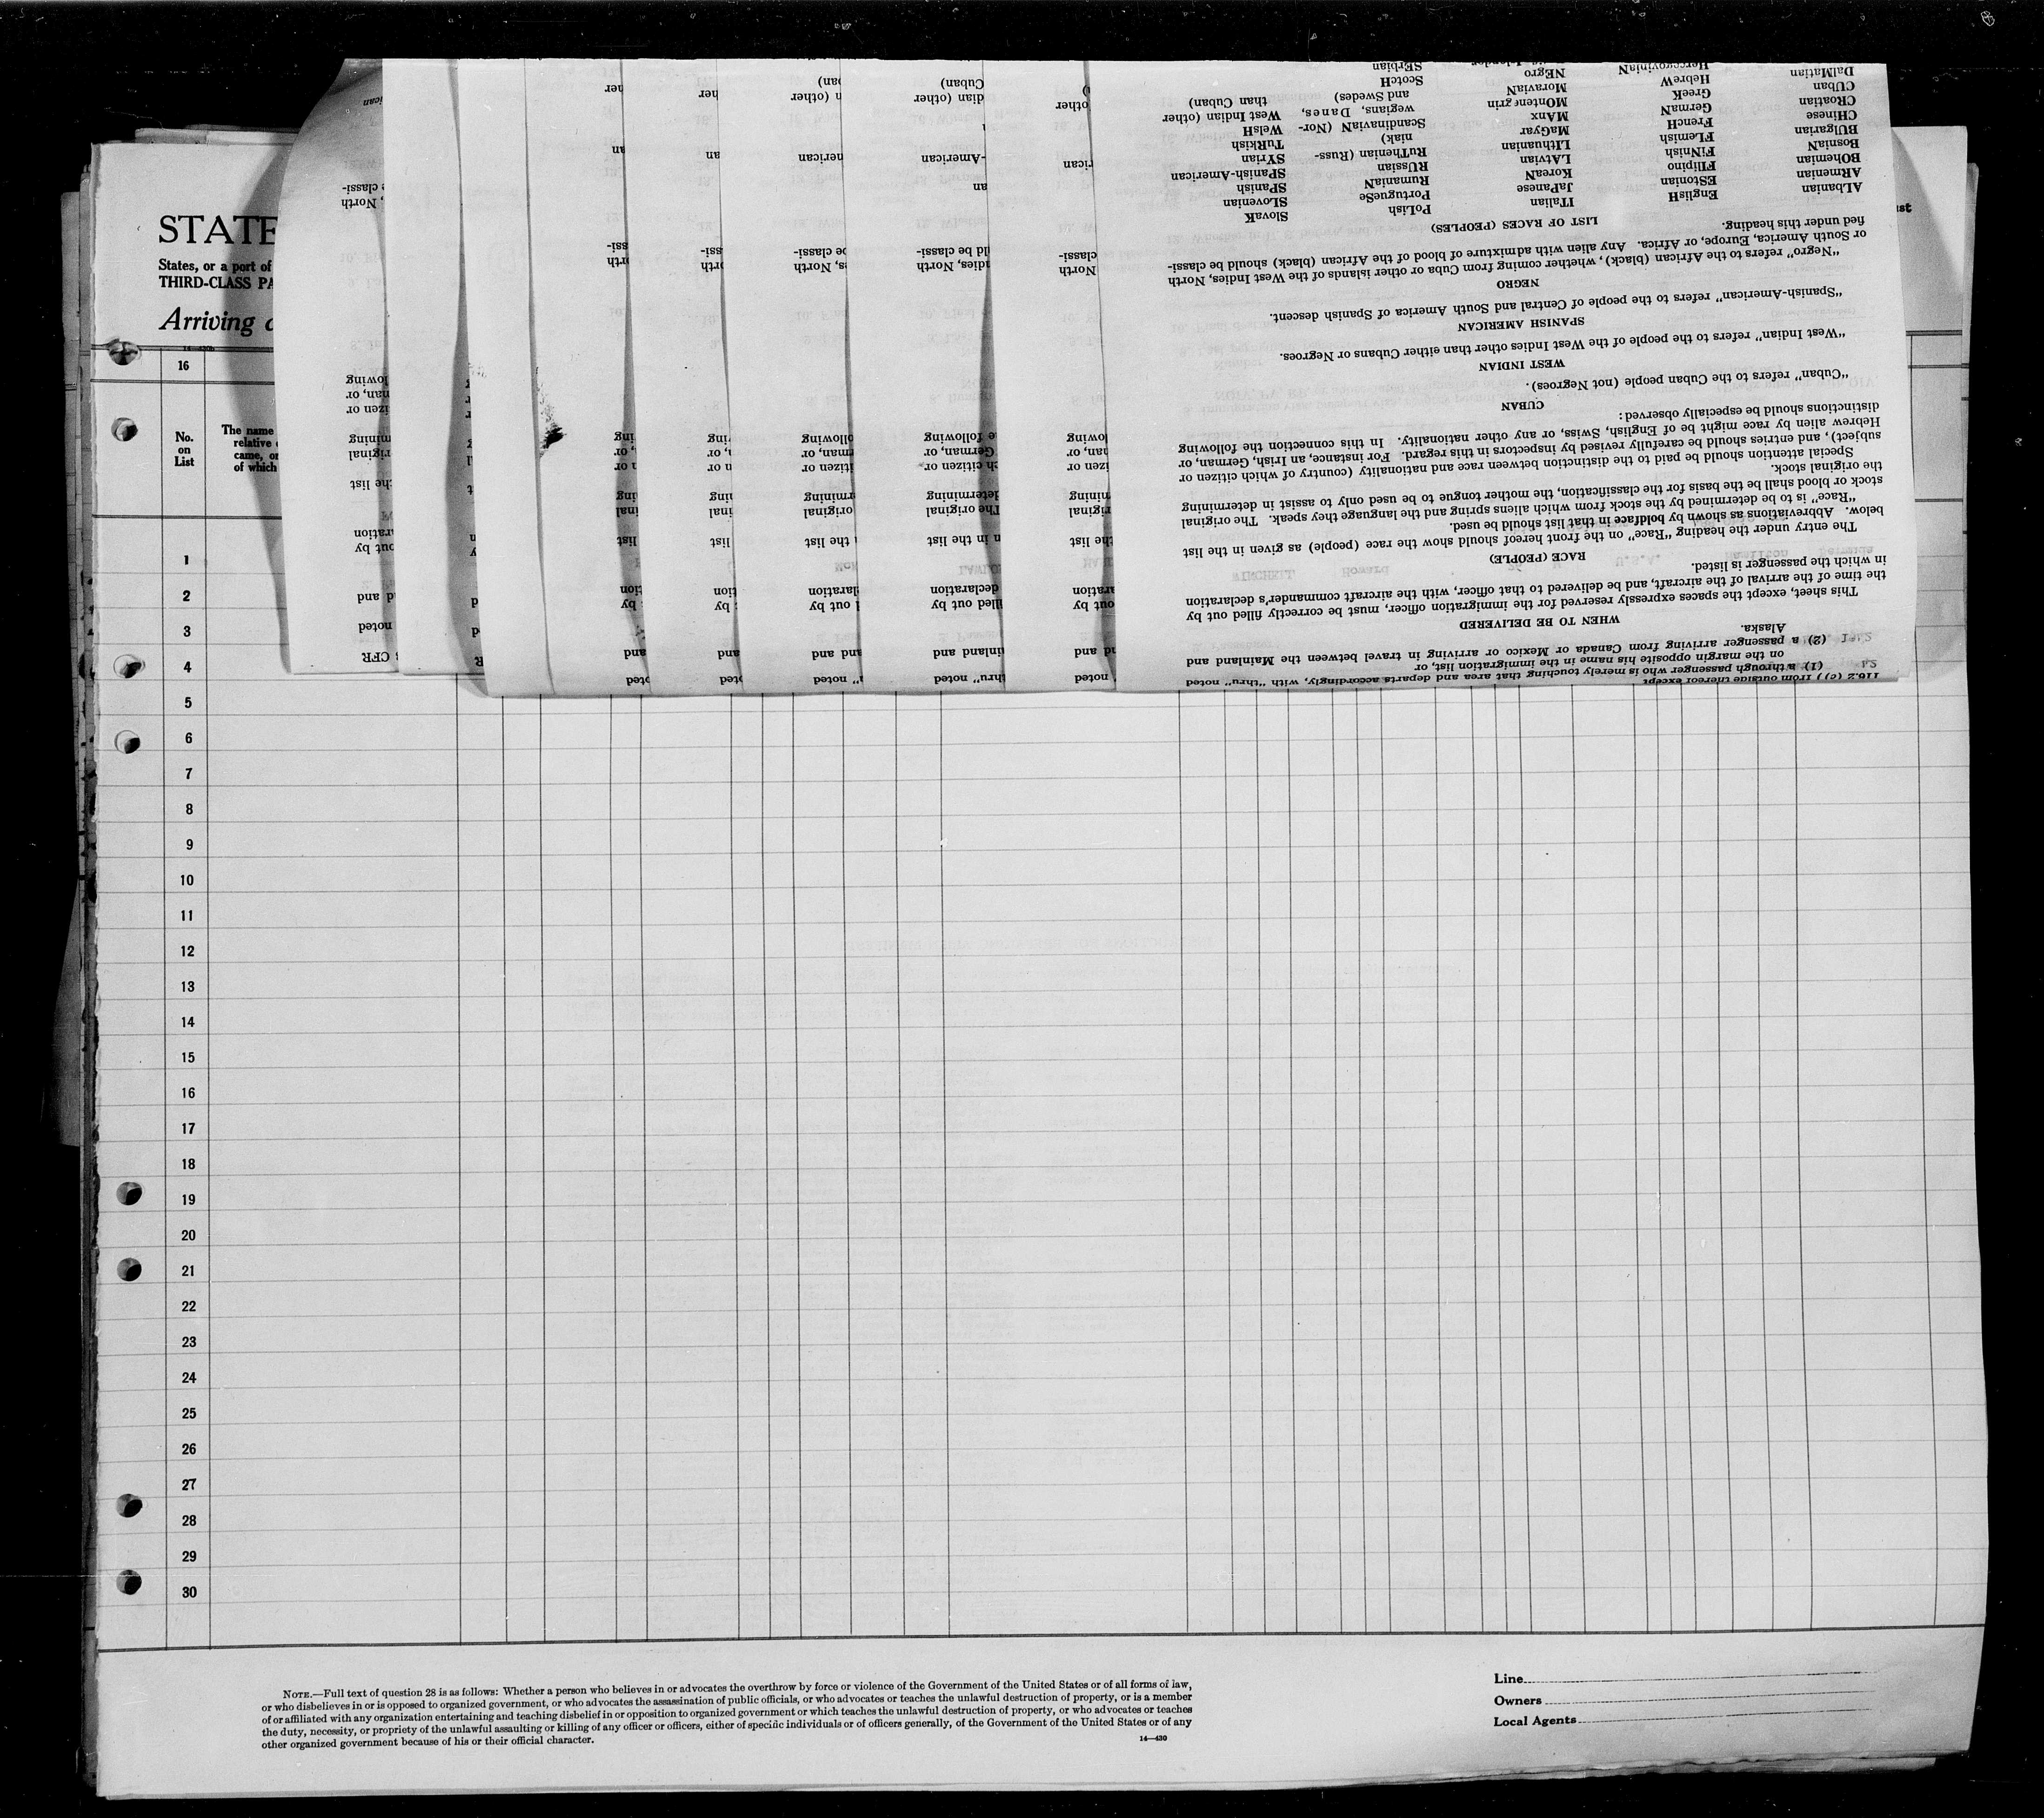 STATE
States, or a port of
THIRD-CLASS PA
Arriving
16
No.
on
List
The name
relative
came, or
of which
110.2 (c)) from outside thereof except
(1) a through passenger who is merely touching that area and departs accordingly, with "thru" noted
on the margin opposite his name in the immigration list, or
(2) a passenger arriving from Canada or Mexico or arriving in travel between the Mainland and
Alaska.
WHEN TO BE DELIVERED
This sheet, except the spaces expressly reserved for the immigration officer, must be correctly filled out by
the time of the arrival of the aircraft, and be delivered to that officer, with the aircraft commander's declaration
in which the passenger is listed.
RACE (PEOPLE)
The entry under the heading "Race" on the front hereof should show the race (people) as given in the list
below. Abbreviations as shown by boldface in that list should be used.
"Race" is to be determined by the stock from which aliens spring and the language they speak. The original
stock or blood shall be the basis for the classification, the mother tongue to be used only to assist in determining
the original stock.
Special attention should be paid to the distinction between race and nationality (country of which citizen or
subject), and entries should be carefully revised by inspectors in this regard. For instance, an Irish, German, or
Hebrew alien by race might be of English, Swiss, or any other nationality. In this connection the following
distinctions should be especially observed:
CUBAN
"Cuban" refers to the Cuban people (not Negroes).
WEST INDIAN
"West Indian" refers to the people of the West Indies other than either Cubans or Negroes.
SPANISH AMERICAN
"Spanish-American" refers to the people of Central and South America of Spanish descent.
NEGRO
"Negro" refers to the African (black), whether coming from Cuba or other islands of the West Indies, North
or South America, Europe, or Africa. Any alien with admixture of blood of the African (black) should be classi-
fied under this heading.
LIST OF RACES (PEOPLES)
ALbanian
ARmenian
BOhemian
BosniaN
BUlgarian
CHinese
CRoatian
CUban
DalMatian
EnglisH
EStonian
FIlipino
FiNNish
FLemish
FrencH
GermaN
GreeK
HebreW
HercegoviniaN
ITalian
JaPanese
KoreaN
LAtvian
LIthuanian
MaGyar
MAnx
MOntenegrin
MoraviaN
NEgro
PoLish
PortugueSe
RumaniaN
RUssian
RuThenian (Russ-
niak)
ScandinaviaN (Nor-
wegians, Danes,
and Swedes)
ScotcH
SErbian
SlovaK
SLOvenian
SPanish
SPanish-American
SYrian
TuRkish
WelsH
West Indian (other
than Cuban)
1
2
3
4
5
6
7
8
9
10
11
12
13
14
15
16
17
18
19
20
21
22
23
24
25
26
27
28
29
30
NOTE.—Full text of question 28 is as follows: Whether a person who believes in or advocates the overthrow by force or violence of the Government of the United States or of all forms of law,
or who disbelieves in or is opposed to organized government, or who advocates the assassination of public officials, or who advocates or teaches the unlawful destruction of property, or is a member
of or affiliated with any organization entertaining and teaching disbelief in or opposition to organized government or which teaches the unlawful destruction of property, or who advocates or teaches
the duty, necessity, or propriety of the unlawful assaulting or killing of any officer or officers, either of specific individuals or of officers generally, of the Government of the United States or of any
other organized government because of his or their official character.
14—430
Line
Owners
Local Agents